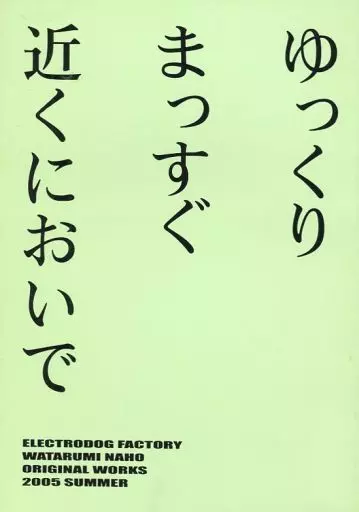 ゆっくり
まっすぐ
近くにおいで
ELECTRODOG FACTORY
WATARUMI NAHO
ORIGINAL WORKS
2005 SUMMER